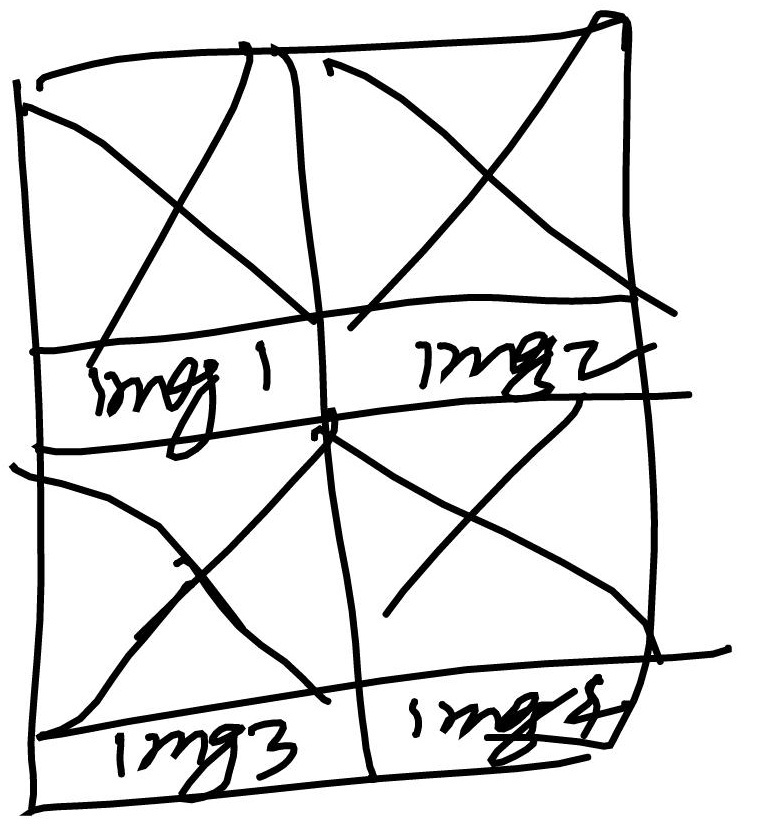 img 1
img2
img3
img4